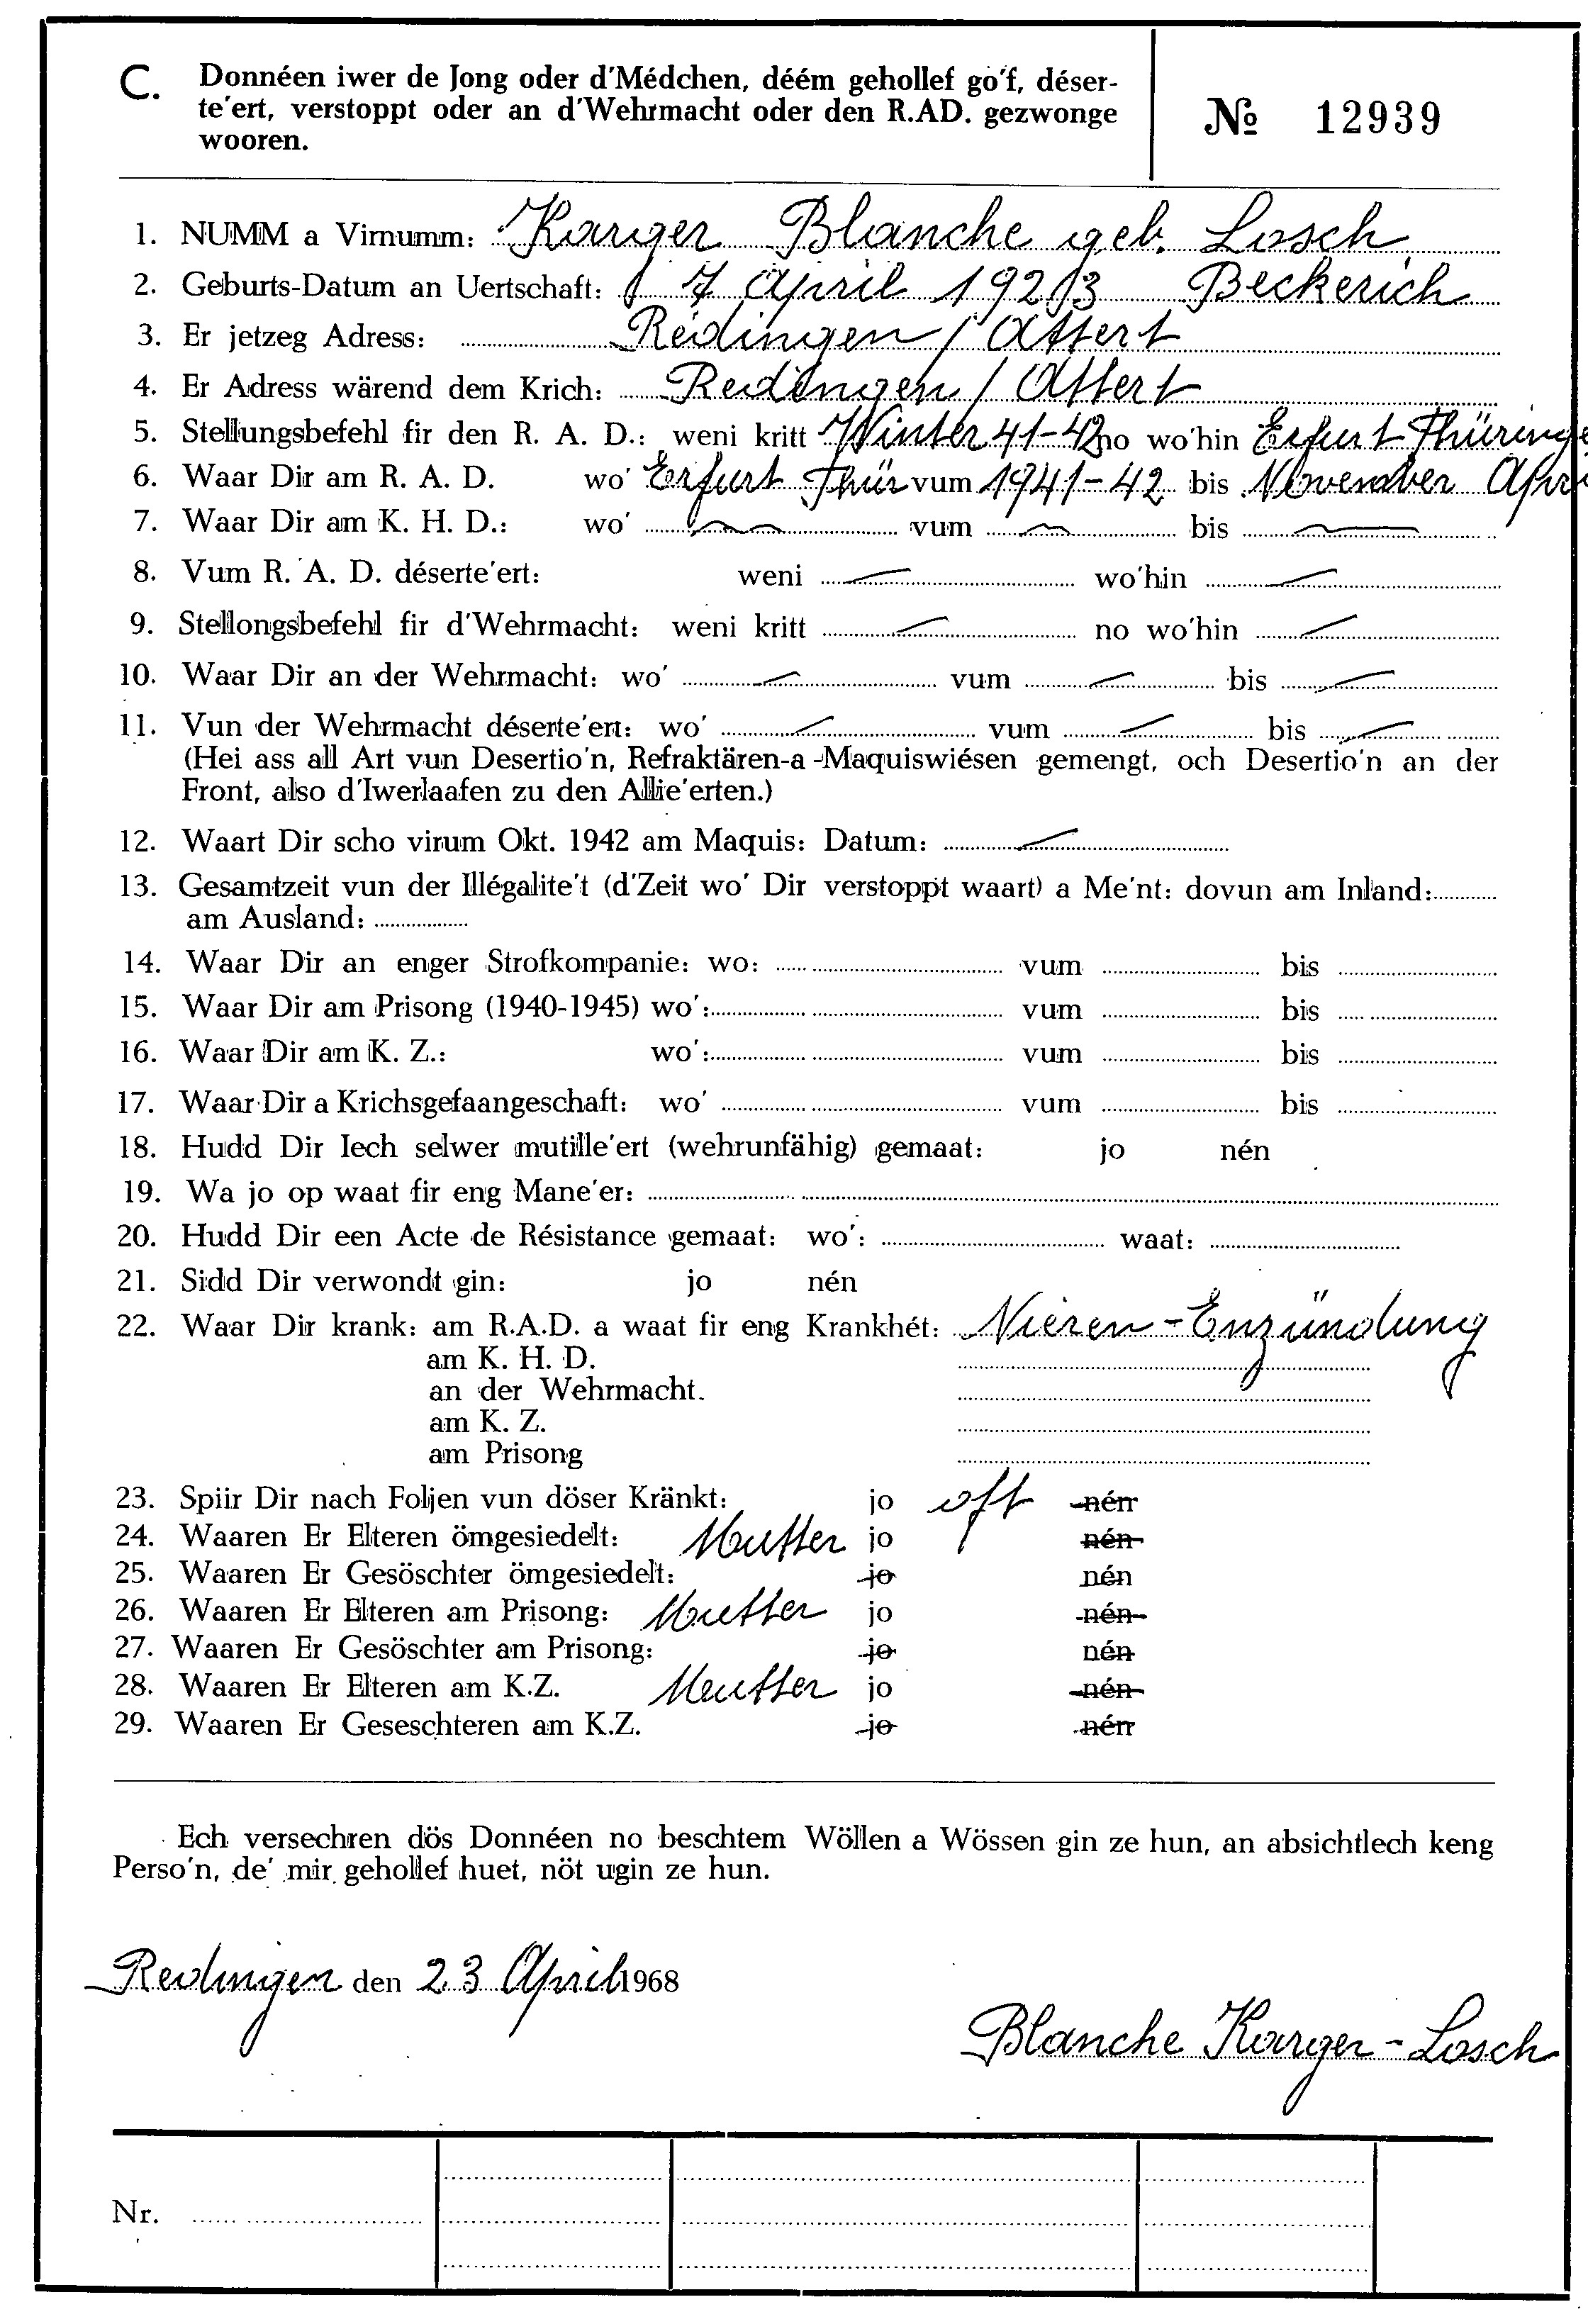 C. Donnéen iwer de Jong oder d'Médchen, déém gehollef go'f, déser-
te'ert, verstoppt oder an d'Wehrmacht oder den R.AD. gezwonge
wooren.
№ 12939
1. NUMM a Virnumm: Karger Blanche geb. Losch
2. Geburts-Datum an Uertschaft: 7 April 1923 Beckerich
3. Er jetzeg Adress: Redingen / Attert
4. Er Adress wärend dem Krich: Redingen / Attert
5. Stellungsbefehl fir den R. A. D.: weni kritt Winter 41-42 no wo'hin Erfurt Thüringe
6. Waar Dir am R. A. D. wo' Erfurt Thür vum 1941-42 bis November Apri
7. Waar Dir am K. H. D.: wo' vum bis
8. Vum R. A. D. déserte'ert: weni wo'hin
9. Stellongsbefehl fir d'Wehrmacht: weni kritt no wo'hin
10. Waar Dir an der Wehrmacht: wo' vum bis
11. Vun der Wehrmacht déserte'ert: wo' vum bis
(Hei ass all Art vun Desertio'n, Refraktären-a-Maquiswiésen gemengt, och Desertio'n an der
Front, also d'Iwerlaafen zu den Allie'erten.)
12. Waart Dir scho virum Okt. 1942 am Maquis: Datum:
13. Gesamtzeit vun der Illégalite't (d'Zeit wo' Dir verstoppt waart) a Me'nt: dovun am Inland:
am Ausland:
14. Waar Dir an enger Strofkompanie: wo: vum bis
15. Waar Dir am Prisong (1940-1945) wo': vum bis
16. Waar Dir am K. Z.: wo': vum bis
17. Waar Dir a Krichsgefaangeschaft: wo' vum bis
18. Hudd Dir Iech selwer mutille'ert (wehrunfähig) gemaat: jo nén
19. Wa jo op waat fir eng Mane'er:
20. Hudd Dir een Acte de Résistance gemaat: wo': waat:
21. Sidd Dir verwondt gin: jo nén
22. Waar Dir krank: am R.A.D. a waat fir eng Krankhét: Nieren-Enzündung
am K. H. D.
an der Wehrmacht.
am K. Z.
am Prisong
23. Spiir Dir nach Foljen vun döser Kränkt: jo oft nén
24. Waaren Er Elteren ömgesiedelt: Mutter jo nén
25. Waaren Er Gesöschter ömgesiedelt: jo nén
26. Waaren Er Elteren am Prisong: Mutter jo nén
27. Waaren Er Gesöschter am Prisong: jo nén
28. Waaren Er Elteren am K.Z. Mutter jo nén
29. Waaren Er Geseschteren am K.Z. jo nén
Ech versechren dös Donnéen no beschtem Wöllen a Wössen gin ze hun, an absichtlech keng
Perso'n, de' mir gehollef huet, nöt ugin ze hun.
Redingen den 23 April 1968
Blanche Karger-Losch
Nr.